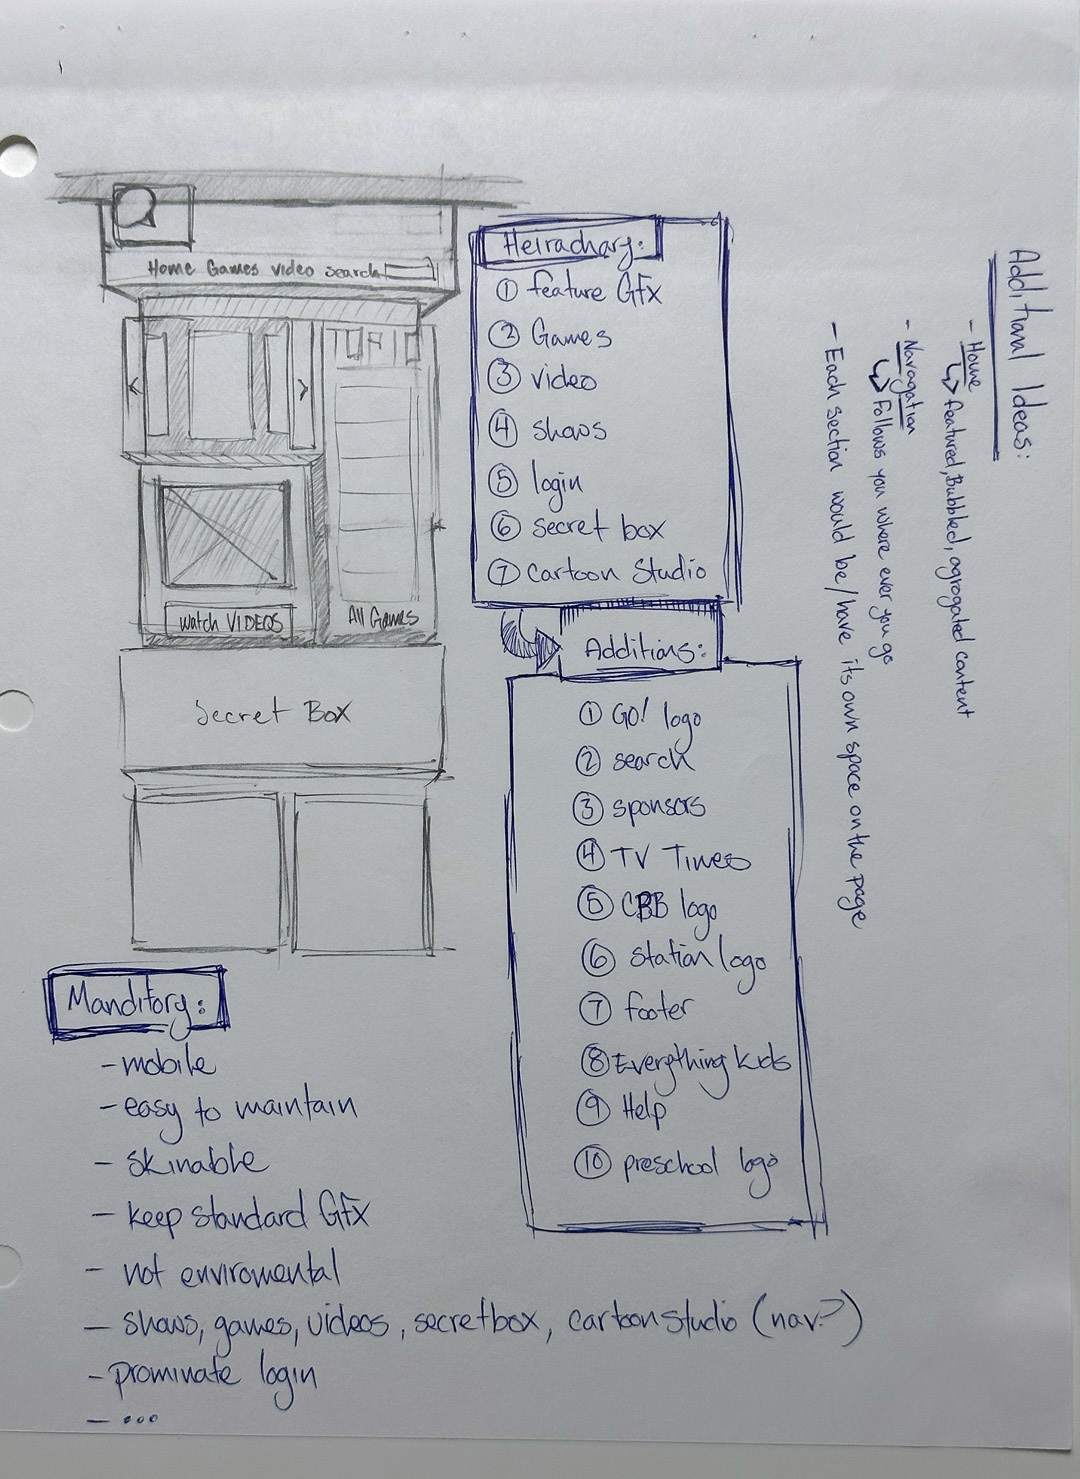 Home Games video search
< >
TOP 10
Watch VIDEOS
All Games
Secret Box
Heirachary:
① feature Gfx
② Games
③ video
④ shows
⑤ login
⑥ secret box
⑦ Cartoon Studio
Additions:
① GO! logo
② search
③ sponsors
④ TV Times
⑤ CBB logo
⑥ Station logo
⑦ footer
⑧ Everything Kids
⑨ Help
⑩ preschool logo
Manditory:
- mobile
- easy to maintain
- skinable
- keep standard Gfx
- not enviromental
- shows, games, videos, secretbox, cartoonstudio (nav?)
- prominate login
- ...
Additional Ideas:
- Home
↳ featured, Bubbled, agrogated content
- Navagation
↳ Follows you where ever you go
- Each section would be/have its own space on the page